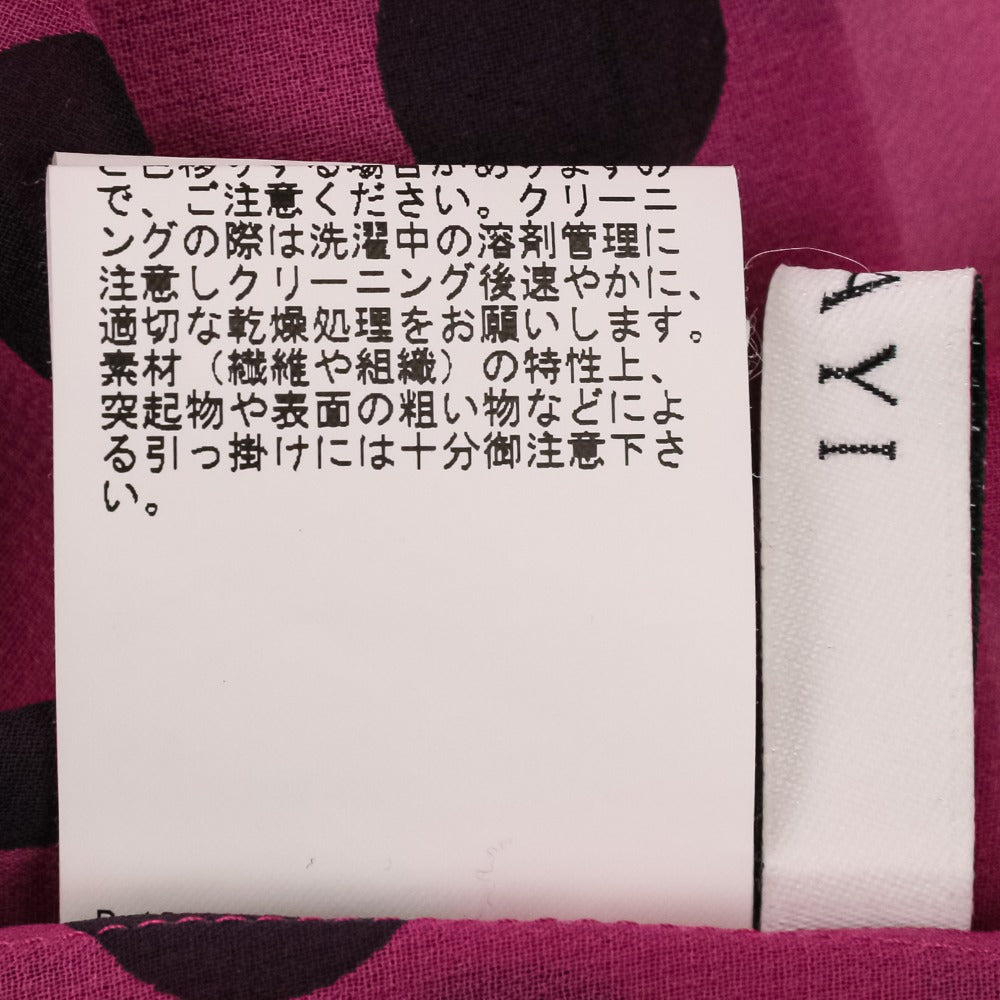 と色移りする場合がありますの
で、ご注意ください。クリーニ
ングの際は洗濯中の溶剤管理に
注意しクリーニング後速やかに、
適切な乾燥処理をお願いします。
素材（繊維や組織）の特性上、
突起物や表面の粗い物などによ
る引っ掛けには十分御注意下さ
い。
AYI